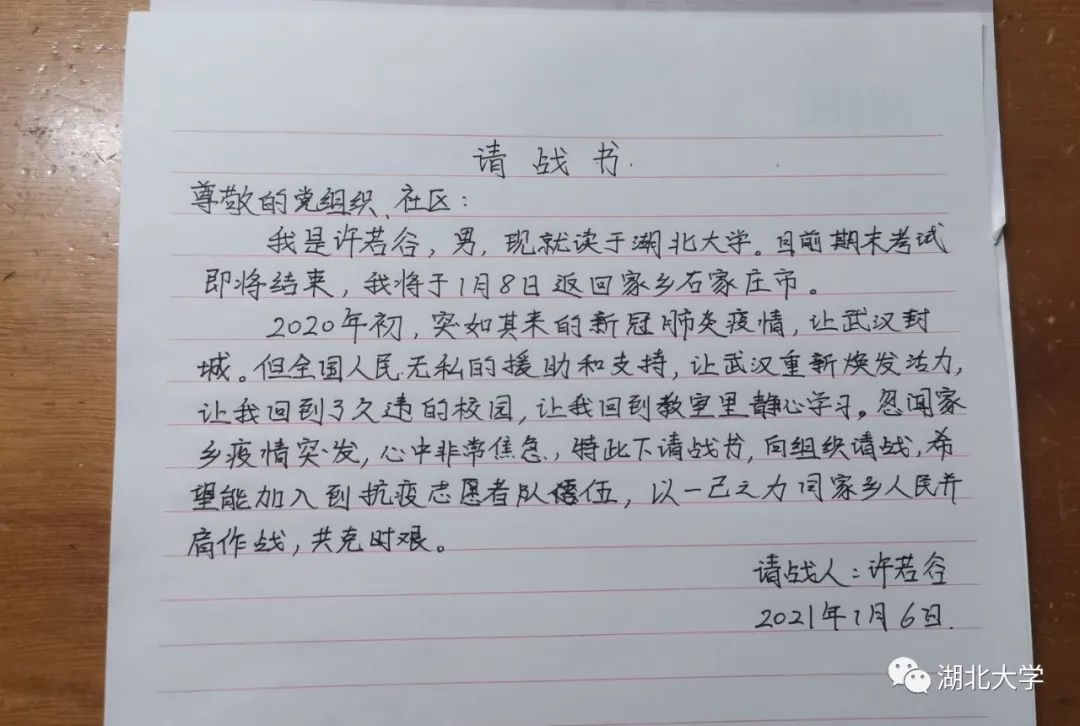 请战书.
尊敬的党组织、社区：
我是许若谷，男，现就读于湖北大学。目前期末考试
即将结束，我将于1月8日返回家乡石家庄市。
2020年初，突如其来的新冠肺炎疫情，让武汉封
城。但全国人民无私的援助和支持，让武汉重新焕发活力，
让我回到了久违的校园，让我回到教室里静心学习。忽闻家
乡疫情突发，心中非常焦急，特此下请战书，向组织请战，希
望能加入到抗疫志愿者队伍，以一己之力同家乡人民并
肩作战，共克时艰。
请战人：许若谷
2021年1月6日.
湖北大学